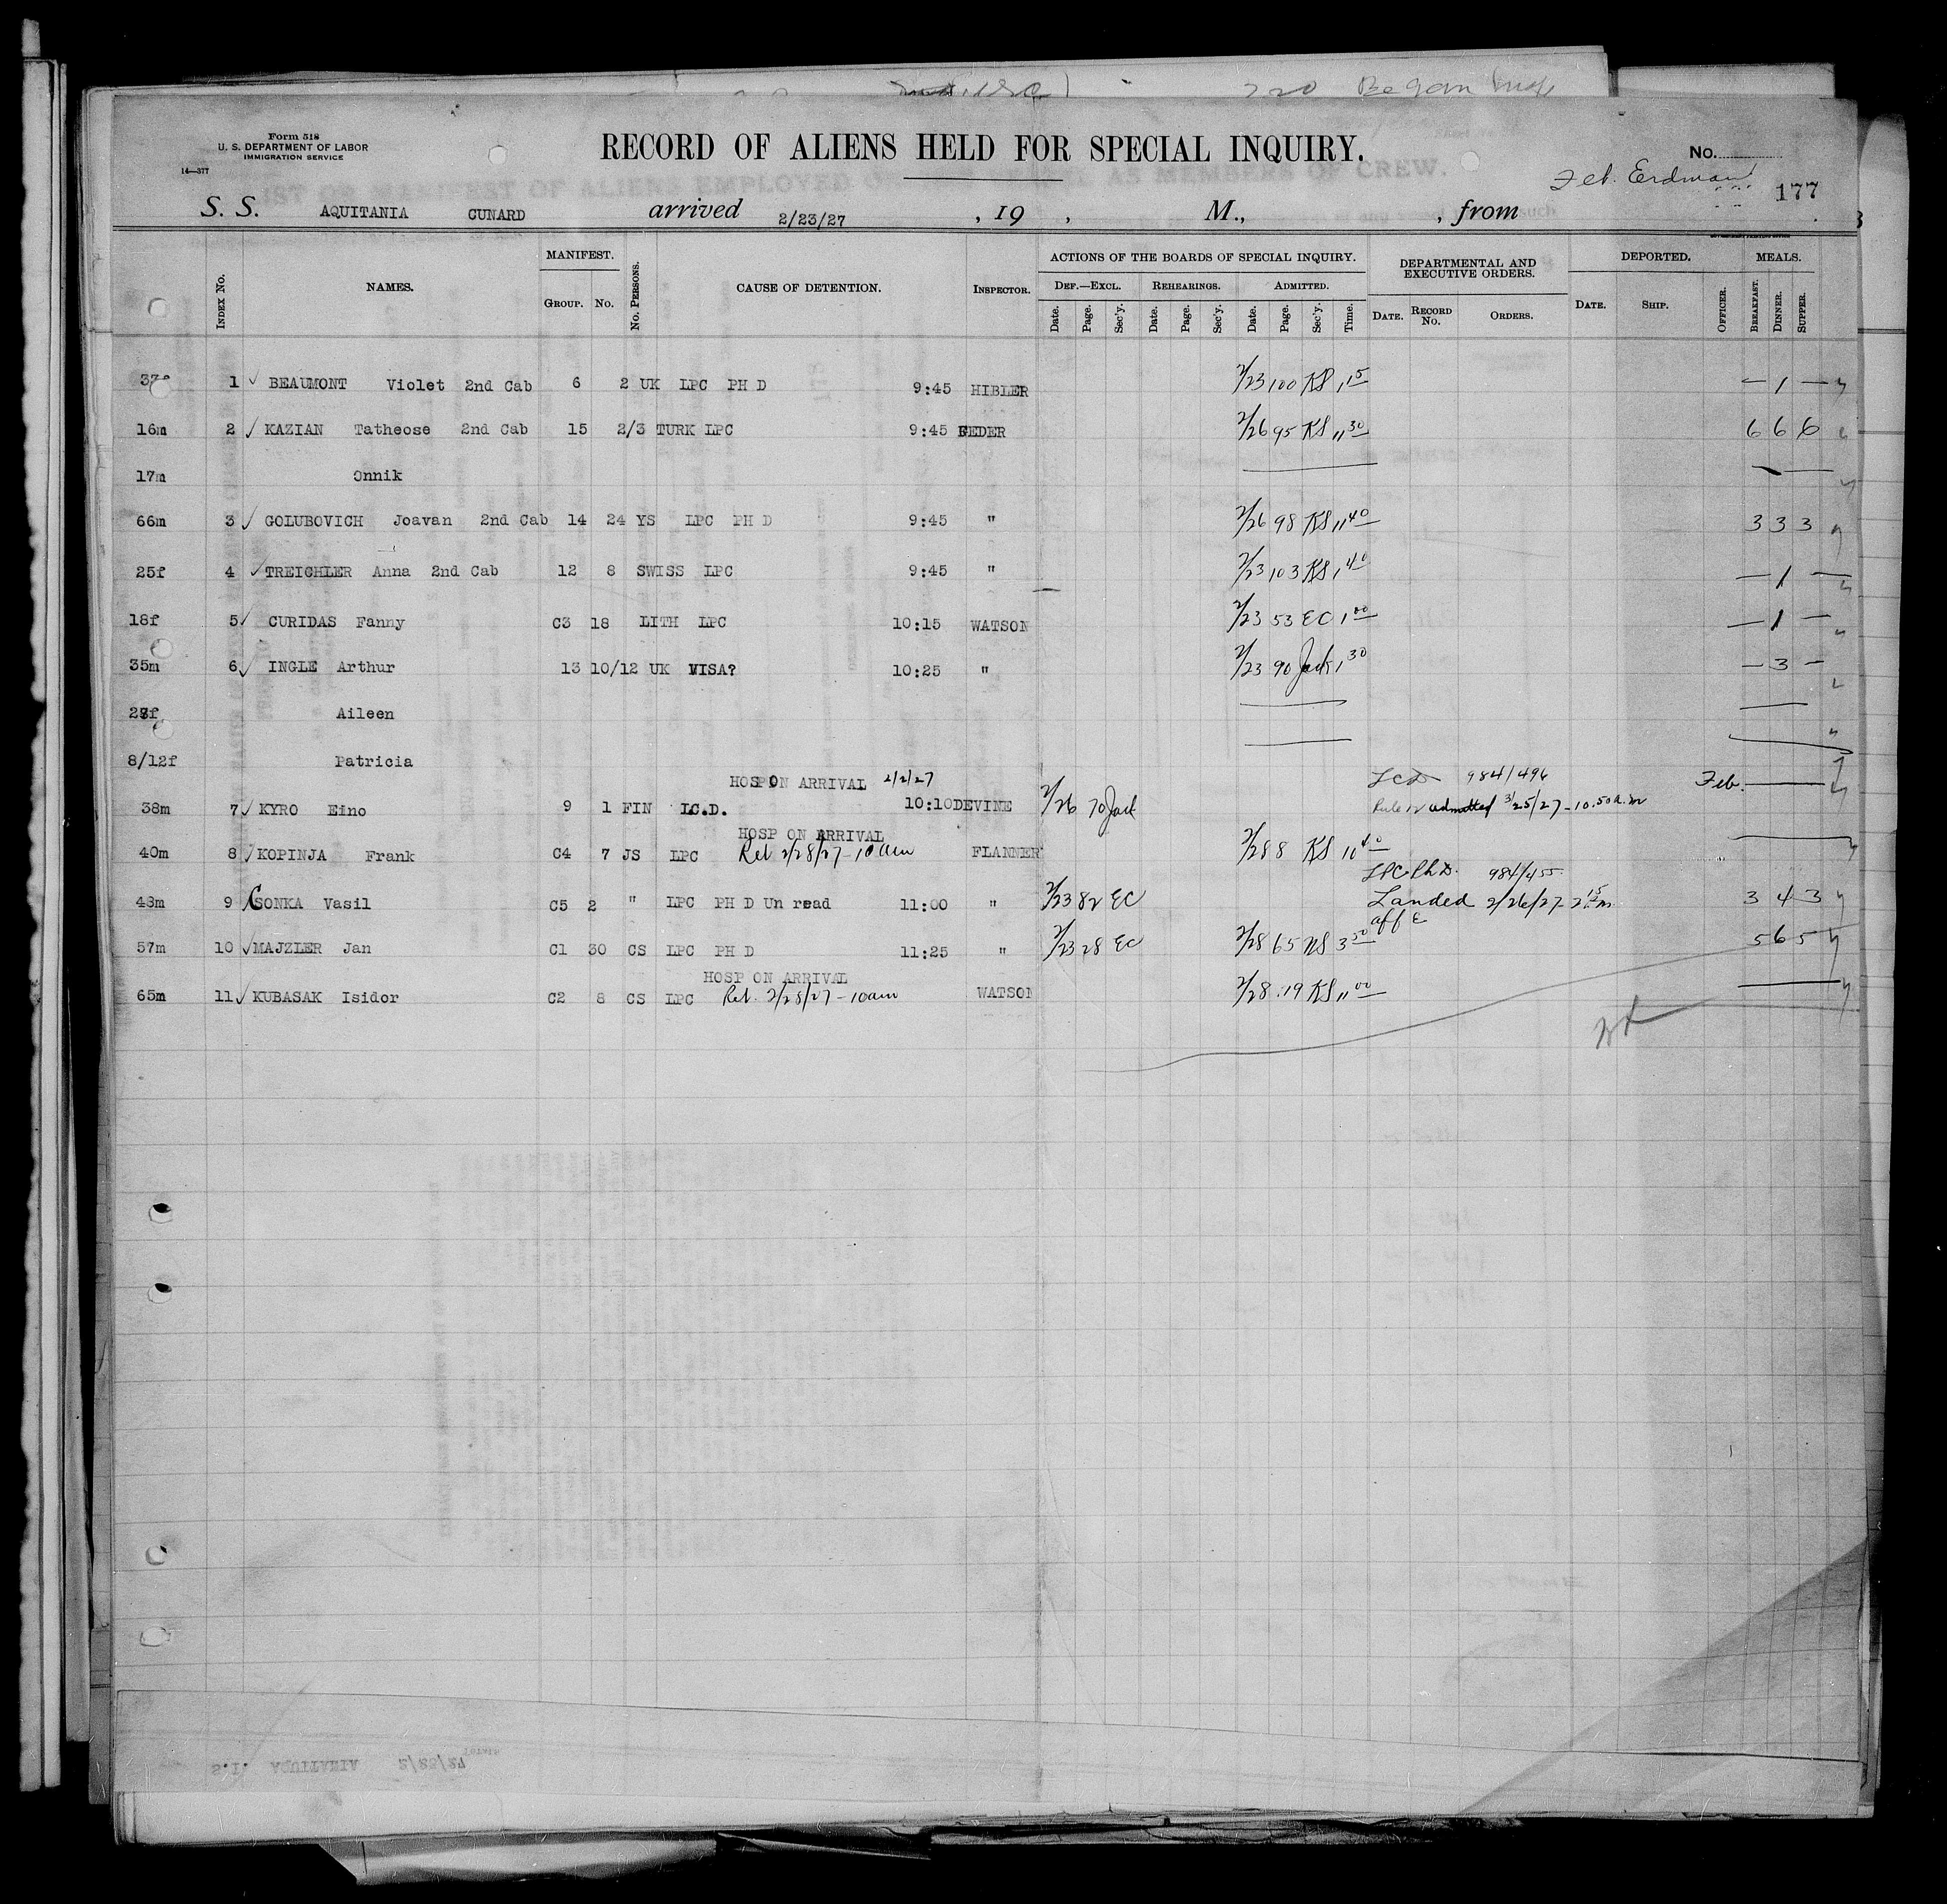 Form 518
U. S. DEPARTMENT OF LABOR
IMMIGRATION SERVICE
14—377
RECORD OF ALIENS HELD FOR SPECIAL INQUIRY.
No.
Feb. Erdman
177
S. S. AQUITANIA CUNARD arrived 2/23/27 , 19 , M., , from
Index No. NAMES. MANIFEST. Group. No. No. Persons. CAUSE OF DETENTION. Inspector. ACTIONS OF THE BOARDS OF SPECIAL INQUIRY. Def.—Excl. Date. Page. Sec'y. Rehearings. Date. Page. Sec'y. Admitted. Date. Page. Sec'y. Time. DEPARTMENTAL AND EXECUTIVE ORDERS. Date. Record No. Orders. DEPORTED. Date. Ship. Officer. MEALS. Breakfast. Dinner. Supper.
37f 1 BEAUMONT Violet 2nd Cab 6 2 UK LPC PH D 9:45 HIBLER 2/23 100 KS 1 15 — 1 —
16m 2 KAZIAN Tatheose 2nd Cab 15 2/3 TURK LPC 9:45 FEDER 2/26 95 KS 11 30 6 6 6
17m Onnik
66m 3 GOLUBOVICH Joavan 2nd Cab 14 24 YS LPC PH D 9:45 " 2/26 98 KS 11 40 3 3 3
25f 4 TREICHLER Anna 2nd Cab 12 8 SWISS LPC 9:45 " 2/23 103 KS 1 40 — 1 —
18f 5 CURIDAS Fanny C3 18 LITH LPC 10:15 WATSON 2/23 53 EC 1 00 — 1 —
35m 6 INGLE Arthur 13 10/12 UK VISA? 10:25 " 2/23 90 Jack 1 30 — 3 —
Aileen
8/12f Patricia
HOSP ON ARRIVAL 2/2/27 LCD 984/496 Feb.
38m 7 KYRO Eino 9 1 FIN LC.D. 10:10 DEVINE 2/26 70 Jack admitted 3/25/27 - 10.50 a.m
HOSP ON ARRIVAL
40m 8 KOPINJA Frank C4 7 JS LPC Rel 2/28/27 - 10 am FLANNER 2/28 8 KS 11 40
LPC Ph D. 984/455
48m 9 CSONKA Vasil C5 2 " LPC PH D Un read 11:00 " 2/23 82 EC Landed 2/26/27 - 2 15 m 3 4 3
aff E
57m 10 MAJZLER Jan C1 30 CS LPC PH D 11:25 " 2/23 28 EC 2/28 65 NS 3 50 5 6 5
HOSP ON ARRIVAL
65m 11 KUBASAK Isidor C2 8 CS LPC Rel. 2/28/27 - 10 am WATSON 2/28 19 KS 11 00
S.I. AQUITANIA 2/23/27